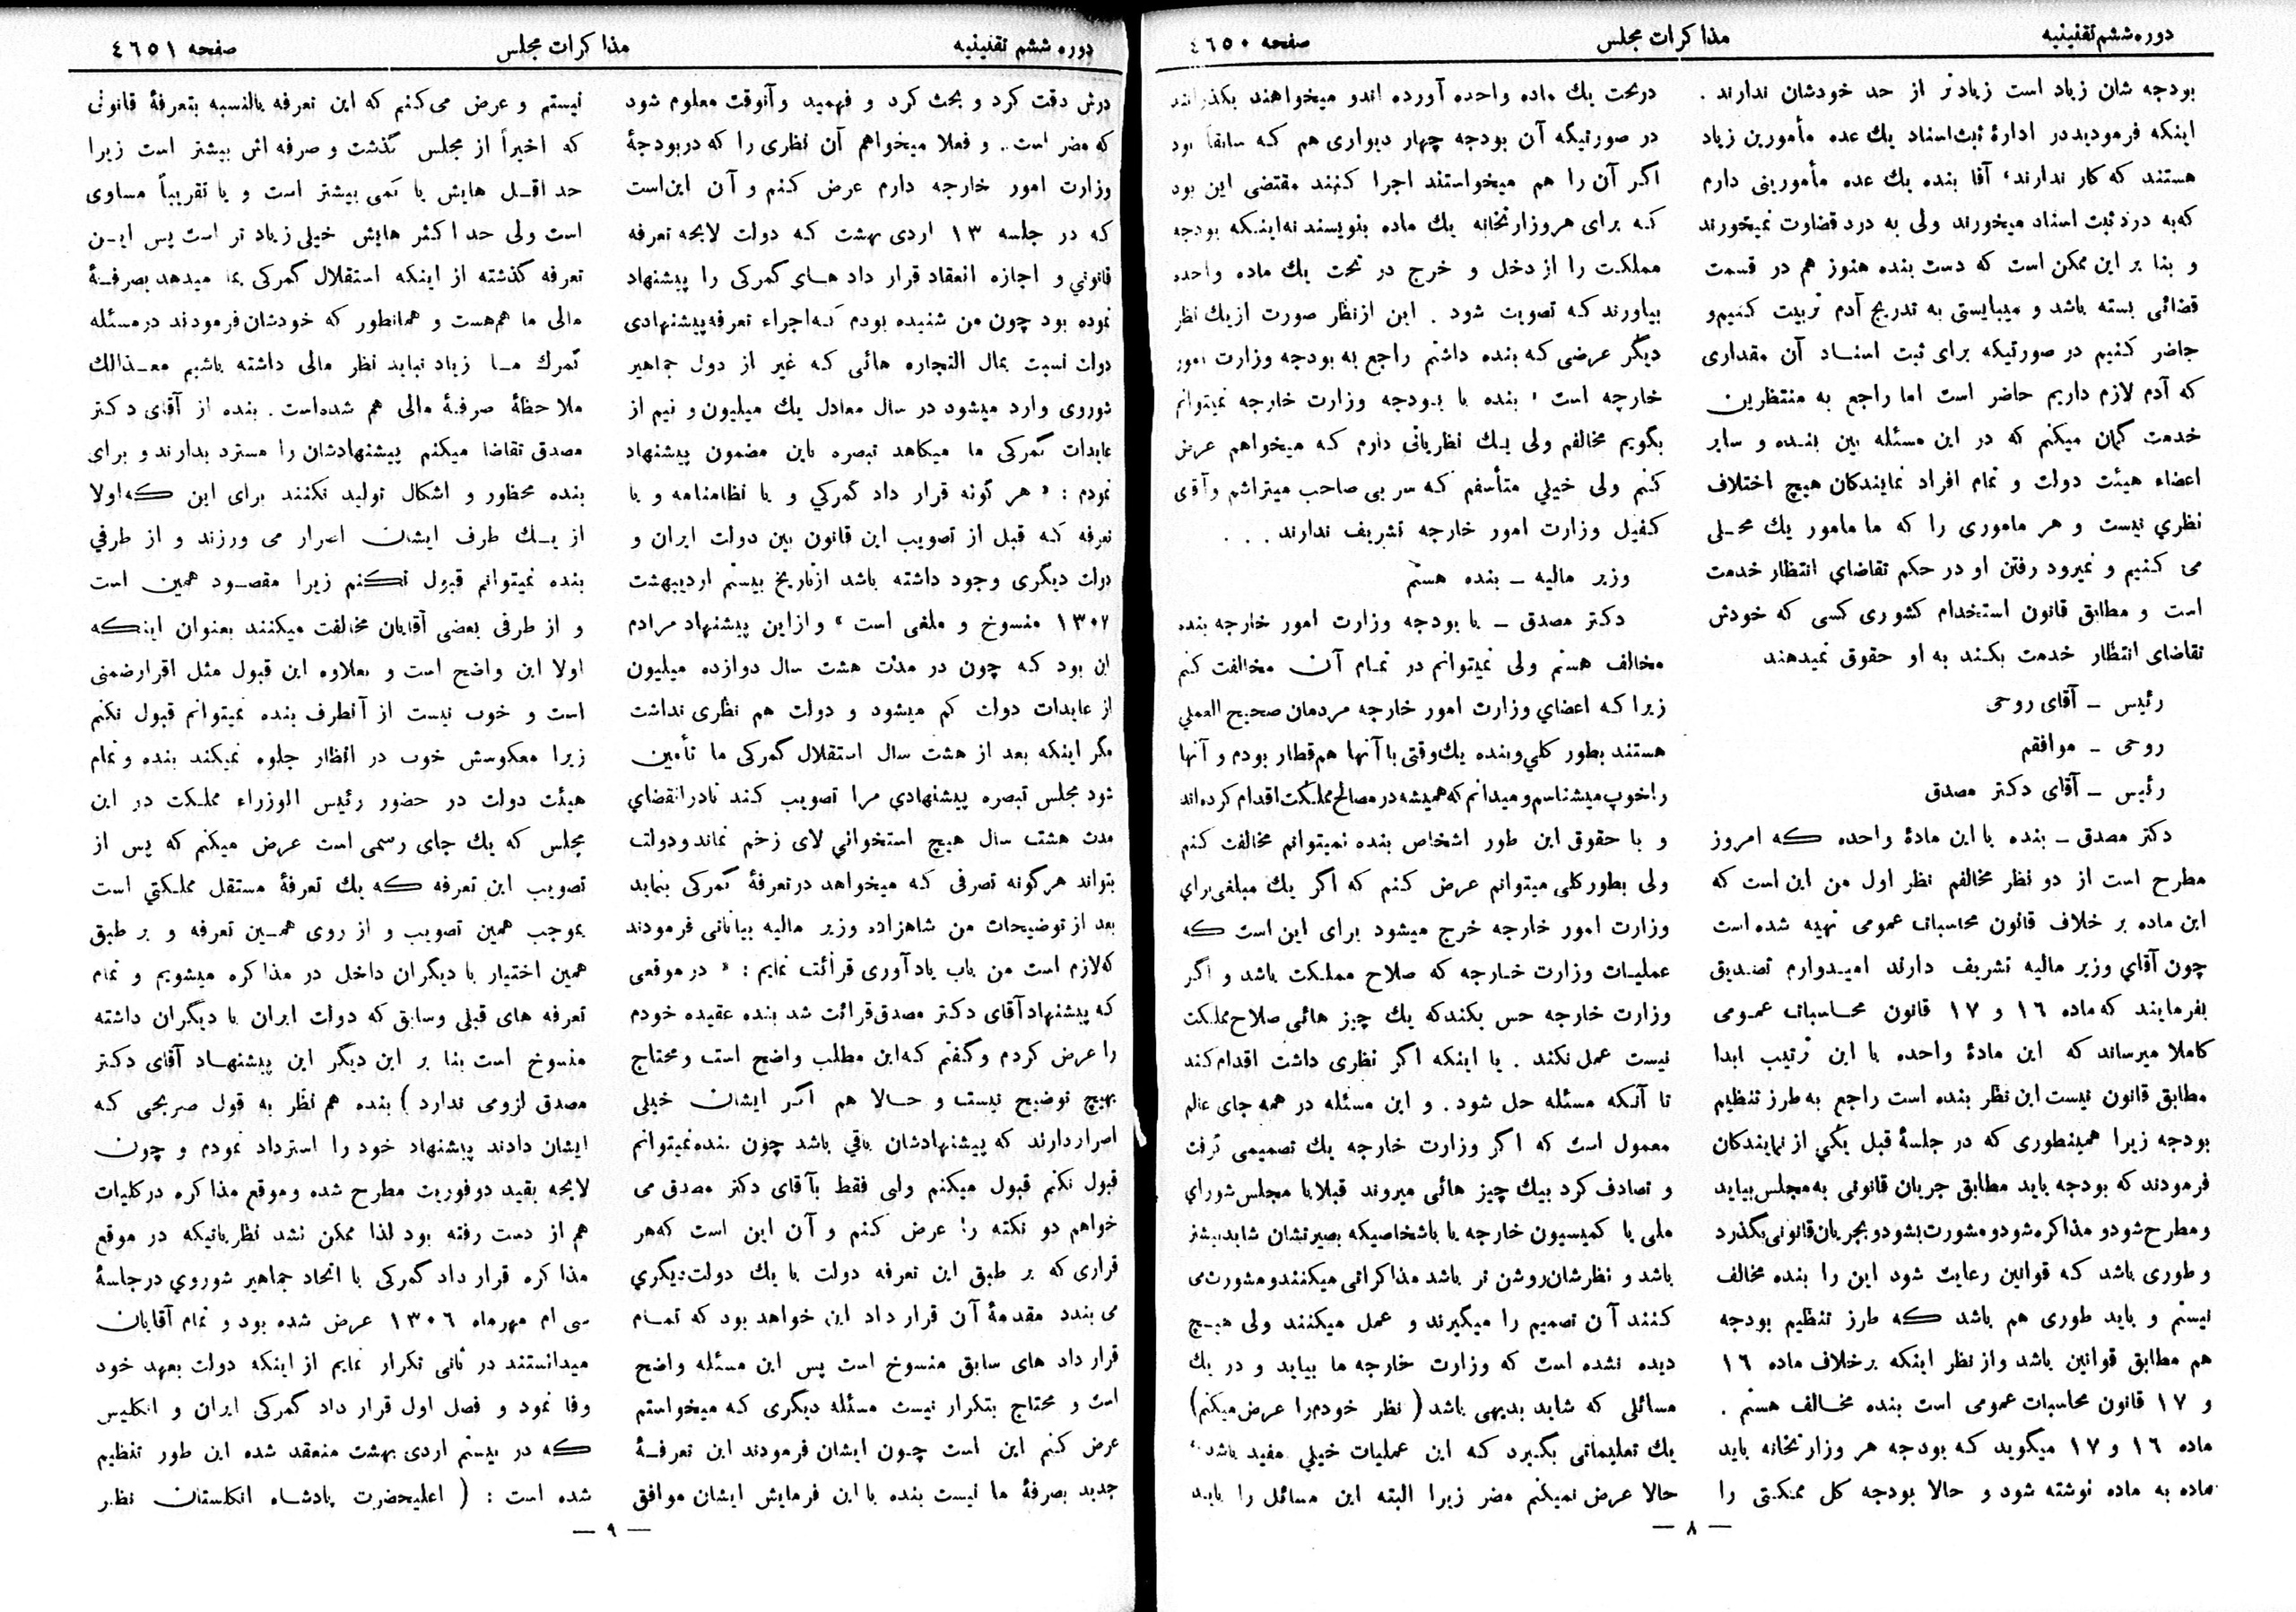 دوره ششم تقنینیه
مذاکرات مجلس
صفحه ٤٦٥٠
بودجه شان زیاد است زیادتر از حد خودشان ندارند .
اینکه فرمودید در ادارۀ ثبت اسناد یك عده مأمورین زیاد
هستند که کار ندارند، آقا بنده یك عده مأمورینی دارم
که به درد ثبت اسناد میخورند ولی به درد قضاوت نمیخورند
و بنا بر این ممکن است که دست بنده هنوز هم در قسمت
قضائی بسته باشد و میبایستی به تدریج آدم تربیت کنیم و
حاضر کنیم در صورتیکه برای ثبت اسناد آن مقداری
که آدم لازم داریم حاضر است اما راجع به منتظرین
خدمت گمان میکنم که در این مسئله بین بنده و سایر
اعضاء هیئت دولت و تمام افراد نمایندکان هیچ اختلاف
نظري نیست و هر ماموری را که ما مامور یك محلی
می کنیم و نمیرود رفتن او در حکم تقاضاي انتظار خدمت
است و مطابق قانون استخدام کشوری کسی که خودش
تقاضای انتظار خدمت بکند به او حقوق نمیدهند
رئیس ـ آقای روحی
روحی ـ موافقم
رئیس ـ آقای دکتر مصدق
دکتر مصدق ـ بنده با این مادۀ واحده که امروز
مطرح است از دو نظر مخالفم نظر اول من این است که
این ماده بر خلاف قانون محاسبات عمومی تهیه شده است
چون آقاي وزیر مالیه تشریف دارند امیدوارم تصدیق
بفرمایند که ماده ١٦ و ١٧ قانون محاسبات عمومی
کاملا میرساند که این مادۀ واحده با این ترتیب ابدا
مطابق قانون نیست این نظر بنده است راجع به طرز تنظیم
بودجه زیرا همینطوری که در جلسۀ قبل یکي از نمایندکان
فرمودند که بودجه باید مطابق جریان قانونی به مجلس بیاید
و مطرح شود و مذاکره شود و مشورت بشود و بجریان قانونی بگذرد
و طوری باشد که قوانین رعایت شود این را بنده مخالف
نیستم و باید طوری هم باشد که طرز تنظیم بودجه
هم مطابق قوانین باشد و از نظر اینکه بر خلاف ماده ١٦
و ١٧ قانون محاسبات عمومی است بنده مخالف هستم .
ماده ١٦ و ١٧ میگوید که بودجه هر وزارتخانه باید
ماده به ماده نوشته شود و حالا بودجه کل مملکتی را
در تحت یك ماده واحده آورده اند و میخواهند بگذرانند
در صورتیکه آن بودجه چهار دیواری هم که سابقاً بود
اگر آن را هم میخواستند اجرا کنند مقتضی این بود
که برای هر وزارتخانه یك ماده بنویسند نه اینکه بودجه
مملکت را از دخل و خرج در تحت یك ماده واحده
بیاورند که تصویب شود . این از نظر صورت از یك نظر
دیگر عرضی که بنده داشتم راجع به بودجه وزارت امور
خارجه است ، بنده با بودجه وزارت خارجه نمیتوانم
بگویم مخالفم ولی یك نظریاتی دارم که میخواهم عرض
کنم ولی خیلي متأسفم که سر بی صاحب میتراشم و آقای
کفیل وزارت امور خارجه تشریف ندارند . . .
وزیر مالیه ـ بنده هستم
دکتر مصدق ـ با بودجه وزارت امور خارجه بنده
مخالف هستم ولی نمیتوانم در تمام آن مخالفت کنم
زیرا که اعضاي وزارت امور خارجه مردمان صحیح العملي
هستند بطور کلي و بنده یك وقتی با آنها هم قطار بودم و آنها
را خوب میشناسم و میدانم که همیشه در مصالح مملکت اقدام کرده اند
و با حقوق این طور اشخاص بنده نمیتوانم مخالفت کنم
ولی بطور کلی میتوانم عرض کنم که اگر یك مبلغی براي
وزارت امور خارجه خرج میشود برای این است که
عملیات وزارت خارجه که صلاح مملکت باشد و اگر
وزارت خارجه حس بکند که یك چیز هائی صلاح مملکت
نیست عمل نکند . یا اینکه اگر نظری داشت اقدام کند
تا آنکه مسئله حل شود . و این مسئله در همه جای عالم
معمول است که اگر وزارت خارجه یك تصمیمی گرفت
و تصادف کرد بیك چیز هائی میروند قبلا با مجلس شوراي
ملی یا کمیسیون خارجه یا باشخاصیکه بصیرتشان شاید بیشتر
باشد و نظرشان روشن تر باشد مذاکراتی میکنند و مشورت می
کنند آن تصمیم را میگیرند و عمل میکنند ولی هیچ
دیده نشده است که وزارت خارجه ما بیاید و در یك
مسائلی که شاید بدیهی باشد ( نظر خودم را عرض میکنم )
یك تعلیماتی بگیرد که این عملیات خیلي مفید باشد،
حالا عرض نمیکنم مضر زیرا البته این مسائل را باید
— ٨ —
دوره ششم تقنینیه
مذاکرات مجلس
صفحه ٤٦٥١
درش دقت کرد و بحث کرد و فهمید و آنوقت معلوم شود
که مضر است.. و فعلا میخواهم آن نظری را که در بودجۀ
وزارت امور خارجه دارم عرض کنم و آن این است
که در جلسه ١٣ اردی بهشت که دولت لایحه تعرفه
قانوني و اجازه انعقاد قرار داد های گمرکی را پیشنهاد
نموده بود چون من شنیده بودم که اجراء تعرفه پیشنهادی
دولت نسبت بمال التجاره هائی که غیر از دول جماهیر
شوروی وارد میشود در سال معادل یك میلیون و نیم از
عایدات گمرکی ما میکاهد تبصره باین مضمون پیشنهاد
نمودم : « هر گونه قرار داد گمرکي و یا نظامنامه و یا
تعرفه که قبل از تصویب این قانون بین دولت ایران و
دولت دیگری وجود داشته باشد از تاریخ بیستم اردیبهشت
١٣٠٧ منسوخ و ملغی است » و از این پیشنهاد مرادم
این بود که چون در مدت هشت سال دوازده میلیون
از عایدات دولت کم میشود و دولت هم نظری نداشت
مگر اینکه بعد از هشت سال استقلال گمرکی ما تأمین
شود مجلس تبصره پیشنهادي مرا تصویب کند تا در انقضاي
مدت هشت سال هیچ استخواني لای زخم نماند و دولت
بتواند هر گونه تصرفی که میخواهد در تعرفۀ گمرکی بنماید
بعد از توضیحات من شاهزاده وزیر مالیه بیاناتی فرمودند
که لازم است من باب یاد آوری قرائت نمایم : « در موقعی
که پیشنهاد آقای دکتر مصدق قرائت شد بنده عقیده خودم
را عرض کردم و گفتم که این مطلب واضح است و محتاج
بهیچ توضیح نیست و حالا هم اگر ایشان خیلی
اصرار دارند که پیشنهادشان باقي باشد چون بنده نمیتوانم
قبول نکنم قبول میکنم ولی فقط بآقای دکتر مصدق می
خواهم دو نکته را عرض کنم و آن این است که هر
قراری که بر طبق این تعرفه دولت با یك دولت دیگري
می بندد مقدمۀ آن قرار داد این خواهد بود که تمام
قرار داد های سابق منسوخ است پس این مسئله واضح
است و محتاج بتکرار نیست مسئله دیگری که میخواستم
عرض کنم این است چون ایشان فرمودند این تعرفۀ
جدید بصرفۀ ما نیست بنده با این فرمایش ایشان موافق
نیستم و عرض می کنم که این تعرفه بالنسبه بتعرفۀ قانونی
که اخیراً از مجلس گذشت و صرفه اش بیشتر است زیرا
حد اقل هایش یا کمی بیشتر است و یا تقریباً مساوی
است ولی حد اکثر هایش خیلی زیاد تر است پس این
تعرفه گذشته از اینکه استقلال گمرکی بما میدهد بصرفۀ
مالی ما هم هست و همانطور که خودشان فرمودند در مسئله
گمرك ما زیاد نباید نظر مالی داشته باشیم معذالك
ملاحظۀ صرفۀ مالی هم شده است . بنده از آقای دکتر
مصدق تقاضا میکنم پیشنهادشان را مسترد بدارند و برای
بنده محظور و اشکال تولید نکنند برای این که اولا
از یك طرف ایشان اصرار می ورزند و از طرفي
بنده نمیتوانم قبول نکنم زیرا مقصود همین است
و از طرفی بعضی آقایان مخالفت میکنند بعنوان اینکه
اولا این واضح است و بعلاوه این قبول مثل اقرار ضمنی
است و خوب نیست از آنطرف بنده نمیتوانم قبول نکنم
زیرا معکوسش خوب در انظار جلوه نمیکند بنده و تمام
هیئت دولت در حضور رئیس الوزراء مملکت در این
مجلس که یك جای رسمی است عرض میکنم که پس از
تصویب این تعرفه که یك تعرفۀ مستقل مملکتي است
بموجب همین تصویب و از روی همین تعرفه و بر طبق
همین اختیار با دیگران داخل در مذاکره میشویم و تمام
تعرفه های قبلی و سابق که دولت ایران با دیگران داشته
منسوخ است بنا بر این دیگر این پیشنهاد آقای دکتر
مصدق لزومی ندارد ) بنده هم نظر به قول صریحی که
ایشان دادند پیشنهاد خود را استرداد نمودم و چون
لایحه بقید دو فوریت مطرح شده و موقع مذاکره در کلیات
هم از دست رفته بود لذا ممکن نشد نظریاتیکه در موقع
مذاکره قرار داد گمرکی با اتحاد جماهیر شوروي در جلسۀ
سی ام مهرماه ١٣٠٦ عرض شده بود و تمام آقایان
میدانستند در ثانی تکرار نمایم از اینکه دولت بعهد خود
وفا نمود و فصل اول قرار داد گمرکی ایران و انگلیس
که در بیستم اردی بهشت منعقد شده این طور تنظیم
شده است : ( اعلیحضرت پادشاه انگلستان نظر
— ٩ —